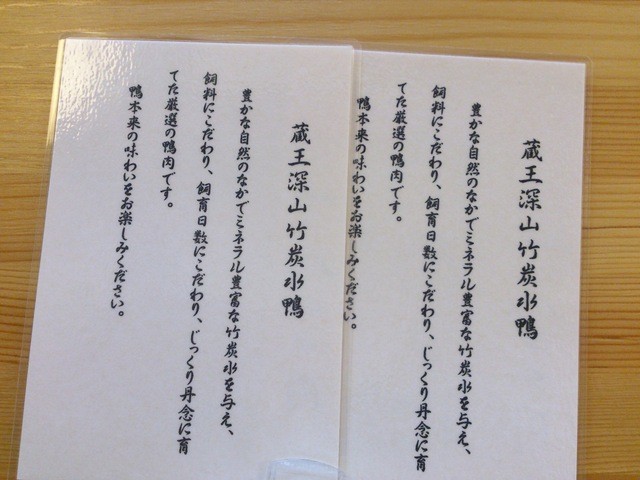 蔵王深山竹炭水鴨
豊かな自然のなかでミネラル豊富な竹炭水を与え、
飼料にこだわり、飼育日数にこだわり、じっくり丹念に育
てた厳選の鴨肉です。
鴨本来の味わいをお楽しみください。
蔵王深山竹炭水鴨
豊かな自然のなかでミネラル豊富な竹炭水を与え、
飼料にこだわり、飼育日数にこだわり、じっくり丹念に育
てた厳選の鴨肉です。
鴨本来の味わいをお楽しみください。